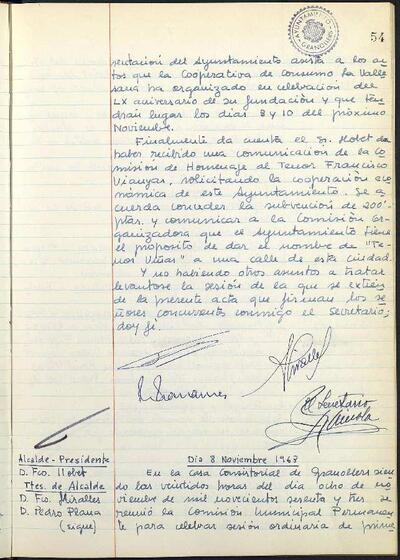 54
AYUNTAMIENTO
GRANOLLERS
sentación del Ayuntamiento asista a los ac-
tos que la Cooperativa de Consumo La Valle
sana ha organizado en celebración del
LX aniversario de su fundación y que ten-
drán lugar los días 8 y 10 del próximo
Noviembre.
Finalmente da cuenta el Sr. Llobet de
haber recibido una comunicación de la Co
misión de Homenaje al Tenor Francisco
Vianyas, solicitando la cooperación eco
nómica de este Ayuntamiento. Se a-
cuerda conceder la subvención de 200'-
ptas. y comunicar a la Comisión Or-
ganizadora que el Ayuntamiento tiene
el propósito de dar el nombre de "Te-
nor Viñas" a una calle de esta ciudad.
Y no habiendo otros asuntos a tratar
levantose la sesión de la que se extien
de la presente acta que firman los se
ñores concurrentes conmigo el Secretario;
doy fé.
El Secretario
Alcalde-Presidente
D. Fco. Llobet
Ttes. de Alcalde
D. Fco. Miralles
D. Pedro Plana
(sigue)
Día 8 Noviembre 1963
En la Casa Consistorial de Granollers sien
do las veintidos horas del día ocho de no
viembre de mil novecientos sesenta y tres se
reunió la Comisión Municipal Permanen
te para celebrar sesión ordinaria de prime